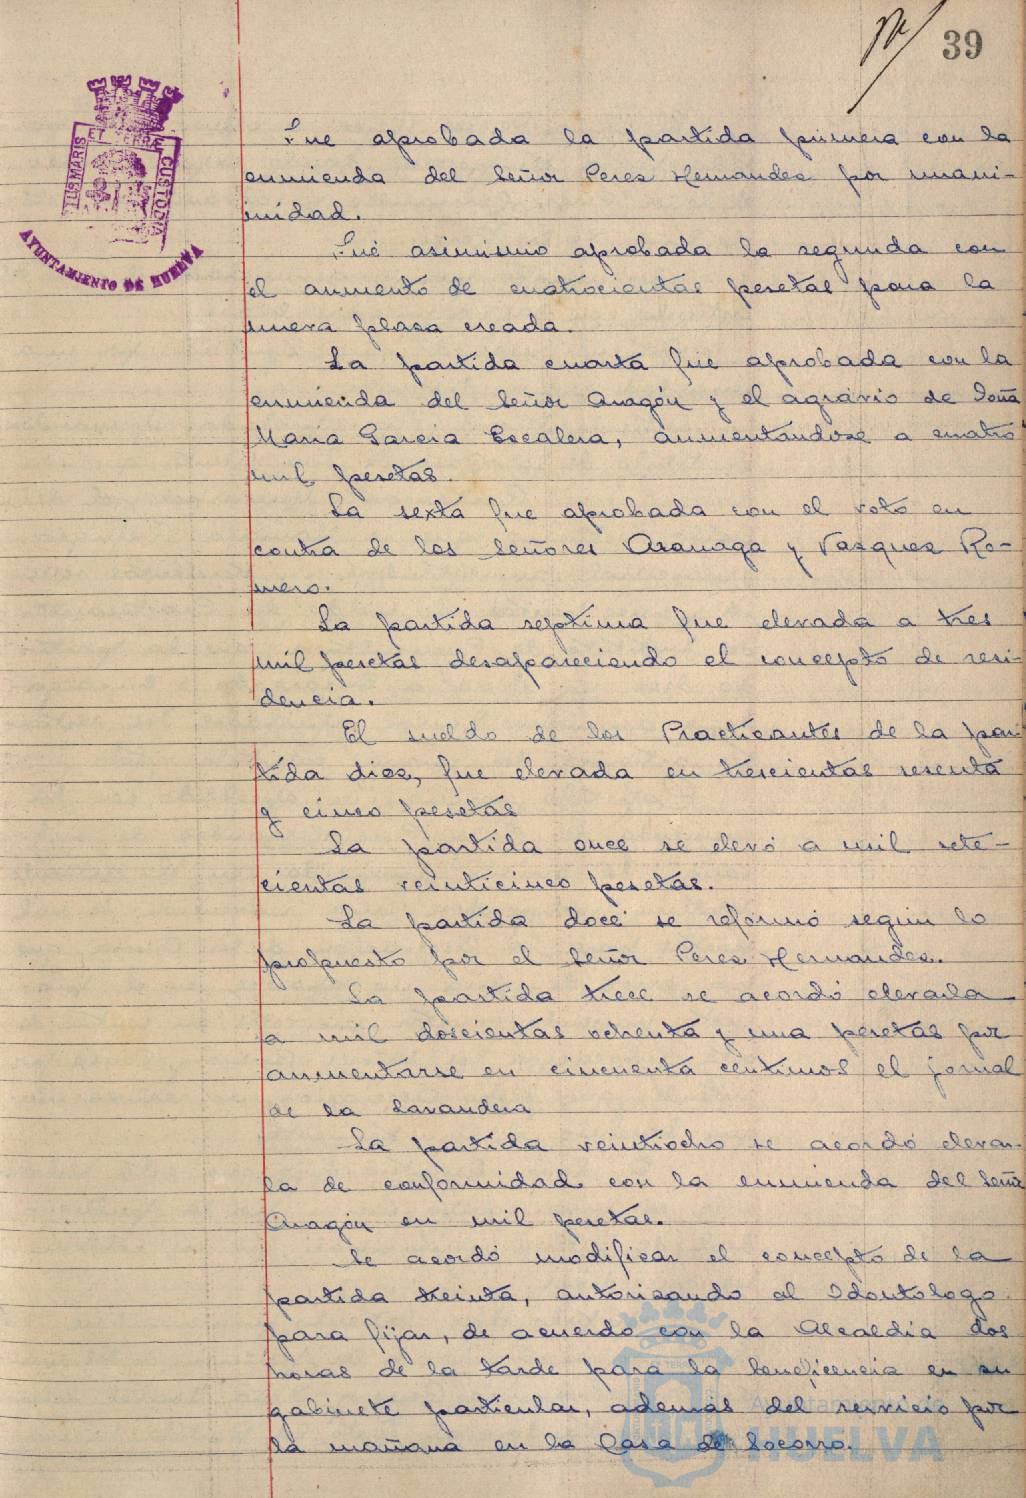 39
PORTUS MARIS ET TERRE CUSTODIA
AYUNTAMIENTO DE HUELVA
Fue aprobada la partida primera con la
enmienda del Señor Peres Hernandes por unani-
midad.
Fué asimismo aprobada la segunda con
el aumento de cuatrocientas pesetas para la
nueva plasa creada.
La partida cuarta fue aprobada con la
enmienda del Señor Aragón y el agravio de Doña
Maria Garcia Escalera, aumentandose a cuatro
mil pesetas.
La sexta fue aprobada con el voto en
contra de los Señores Oranaga y Vasques Ro-
mero.
La partida septima fue elevada a tres
mil pesetas desapareciendo el concepto de resi-
dencia.
El sueldo de los Practicantes de la par-
tida dies, fue elevada en trescientas sesenta
y cinco pesetas
La partida once se elevó a mil sete-
cientas veinticinco pesetas.
La partida doce se reformó según lo
propuesto por el Señor Peres Hernandes.
La partida trece se acordó elevarla
a mil doscientas ochenta y una pesetas por
aumentarse en cincuenta centimos el jornal
de la lavandera
La partida veintiocho se acordó elevar-
la de conformidad con la enmienda del Señor
Aragón en mil pesetas.
Se acordó modificar el concepto de la
partida treinta, autorisando al Odontologo
para fijar, de acuerdo con la Alcaldia dos
horas de la tarde para la beneficencia en su
gabinete particular, además del servicio por
la mañana en la Casa de Socorro.
HUELVA